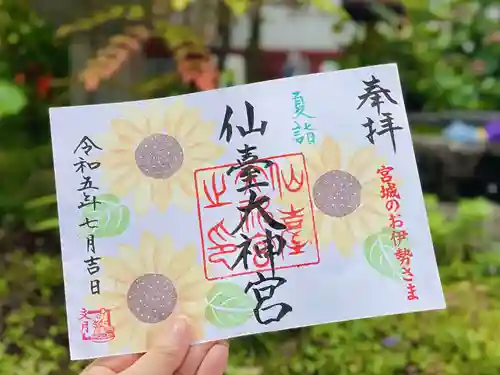 奉拝
宮城のお伊勢さま
夏詣
仙臺大神宮
令和五年七月吉日
文月